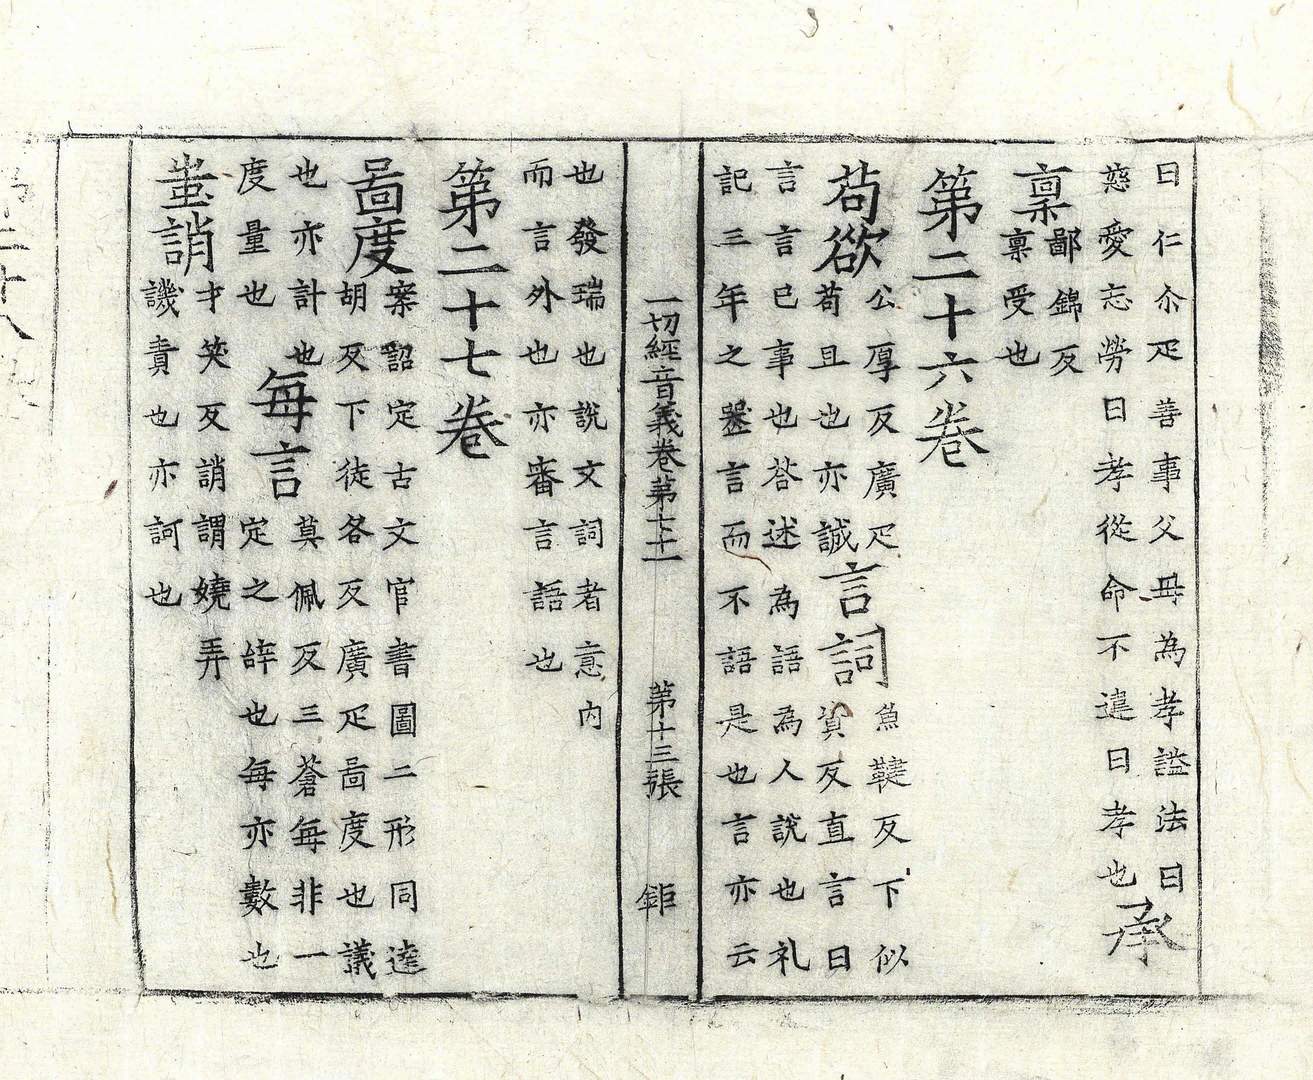 曰仁尒疋善事父母為孝謚法曰
慈愛忘勞曰孝從命不違曰孝也承
稟鄙錦反
稟受也
第二十六卷
苟欲公厚反廣疋
苟且也亦誠言詞魚鞬反下似
資反直言曰
言言已事也荅述為語為人說也礼
記三年之喪言而不語是也言亦云
一切經音義卷苐十二 第十三張 鉅
也發瑞也說文詞者意內
而言外也亦審言語也
第二十七卷
啚度案詔定古文官書圖二形同達
胡反下徒各反廣疋啚度也議
也亦計也每言莫佩反三蒼每非一
度量也定之辝也每亦數也
蚩誚才笑反誚謂嬈弄
譏責也亦訶也